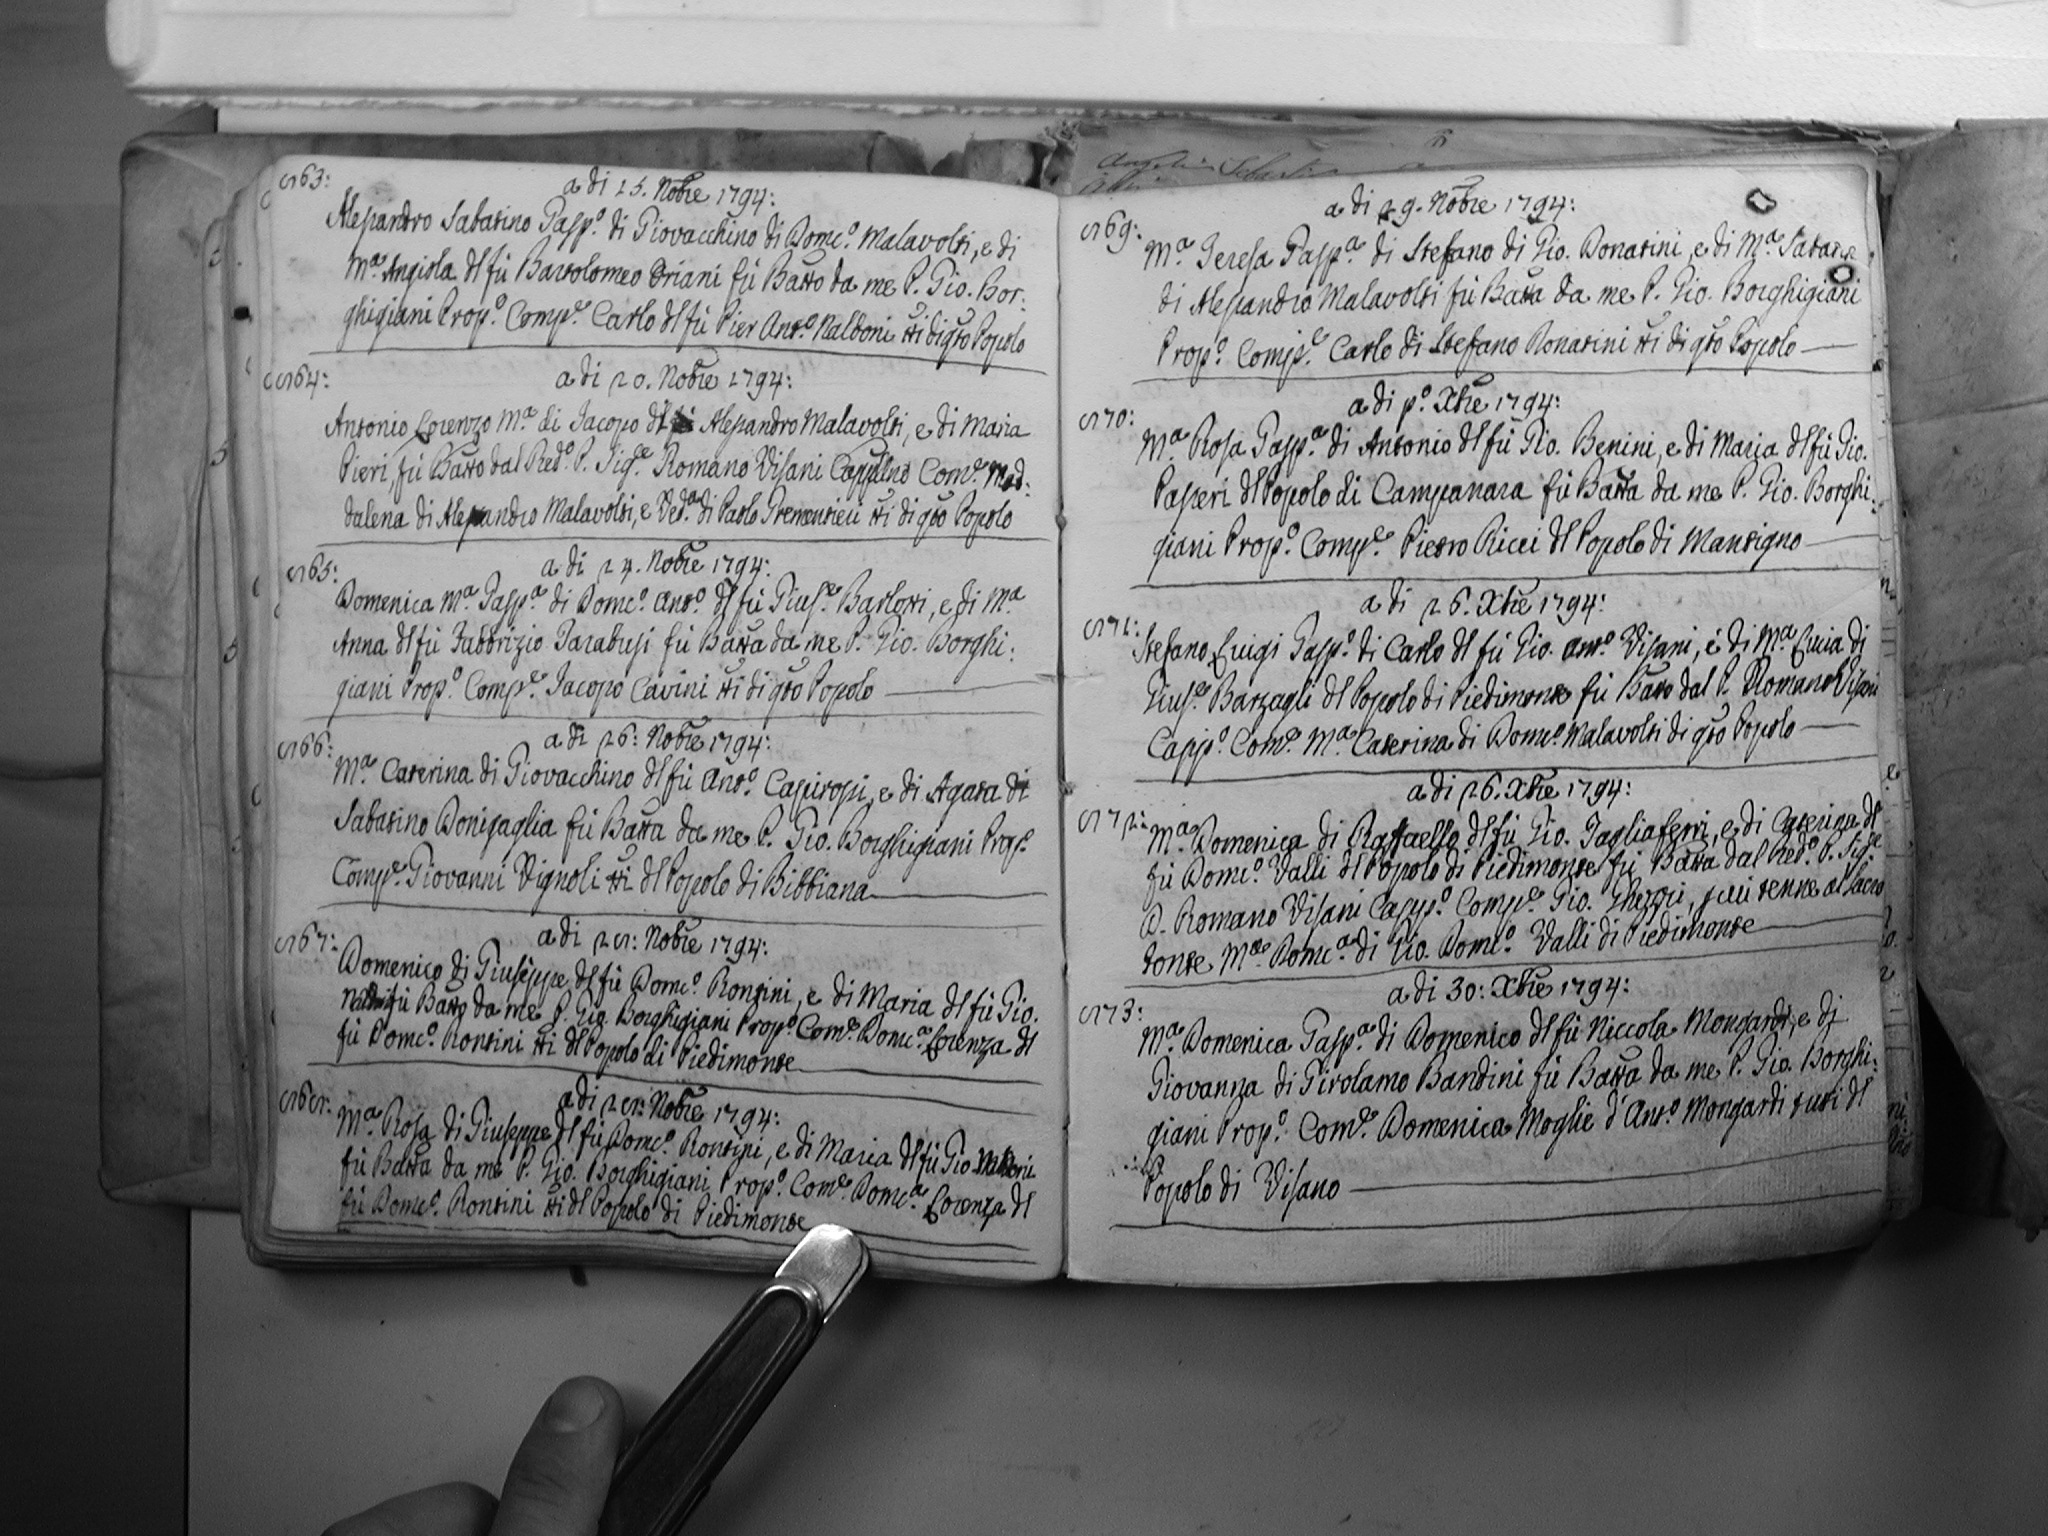 563:
a di 15. Nobre 1794:
Alesandro Sabatino Gasp.o di Giovacchino di Dom.co Malavolti, e di
M.a Angiola dl fù Bartolomeo Oriani fù Batto da me P. Gio. Bor:
ghigiani Prop.o Comp.e Carlo dl fù Pier Ant.o Naldoni tti di qto Popolo
564:
a di 20. Nobre 1794:
Antonio Lorenzo M.a di Jacopo dl Alesandro Malavolti, e di Maria
Pieri, fù Batto dal Red.o P. Sig.e Romano Visani Cappuno Com.e Mad:
dalena di Alesandro Malavolti, e Ved.a di Paolo tti di qto Popolo
565:
a di 24. Nobre 1794:
Domenica M.a Gasp.a di Dom.co Ant.o dl fù Gius.e Bartotti, e di M.a
Anna dl fù Fabbrizio Tarabusi fù Batta da me P. Gio. Borghi:
giani Prop.o Comp.e Jacopo Cavini tti di qto Popolo
566:
a di 26: Nobre 1794:
M.a Caterina di Giovacchino dl fù Ant.o Capiropi, e di Agata di
Sabatino Donigaglia fù Batta da me P. Gio. Borghigiani Prop.o
Comp.e Giovanni Vignoli tti dl Popolo di Bibbiana
567:
a di 28: Nobre 1794:
Domenico di Giuseppe dl fù Dom.co Rontini, e di Maria dl fù Gio.
Naldoni fù Batto da me P. Gio. Borghigiani Prop.o Com.e Dom.ca Lorenza dl
fù Dom.co Rontini tti dl Popolo di Piedimonte
568:
a di 28: Nobre 1794:
M.a Rosa di Giuseppe dl fù Dom.co Rontini, e di Maria dl fù Gio. Naldoni
fù Batta da me P. Gio. Borghigiani Prop.o Com.e Dom.ca Lorenza dl
fù Dom.co Rontini tti dl Popolo di Piedimonte
569:
a di 29. Nobre 1794:
M.a Teresa Gasp.a di Stefano di Gio. Donatini, e di M.a
di Alesandro Malavolti fù Batta da me P. Gio. Borghigiani
Prop.o Comp.e Carlo di Stefano Donatini tti di qto Popolo
570:
a di p.o Xbre 1794:
M.a Rosa Gasp.a di Antonio dl fù Gio. Benini, e di Maria dl fù Gio.
Paseri dl Popolo di Campanara fù Batta da me P. Gio. Borghi:
giani Prop.o Comp.e Pietro Ricci dl Popolo di Mantigno
571:
a di 26. Xbre 1794:
Stefano Luigi Gasp.o di Carlo dl fù Gio. Ant.o Visani, e di M.a Lucia di
Gius.e Barzagli dl Popolo di Piedimonte fù Batto dal P. Romano Visani
Capp.o Com.e M.a Caterina di Dom.co Malavolti di qto Popolo
572:
a di 26. Xbre 1794:
M.a Domenica di Raffaello dl fù Gio. Tagliaferri, e di Caterina dl
fù Dom.co Valli dl Popolo di Piedimonte fù Batta dal Red.o P. Sig.e
D. Romano Visani Capp.o Comp.e Gio. Gherzi, e chi tenne al Sacro
Fonte M.a Dom.ca di Gio. Dom.co Valli di Piedimonte
573:
a di 30: Xbre 1794:
M.a Domenica Gasp.a di Domenico dl fù Niccola Mongardi, e di
Giovanna di Girolamo Bandini fù Batta da me P. Gio. Borghi:
giani Prop.o Com.e Domenica Moglie d'Ant.o Mongardi tutti dl
Popolo di Visano